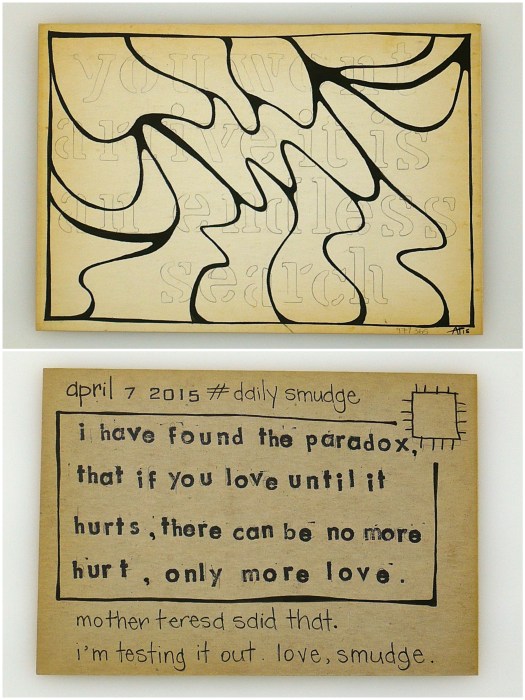 you wont
arrive it is
an endless
search
april 7 2015 # daily smudge
i have found the paradox,
that if you love until it
hurts, there can be no more
hurt, only more love.
mother teresa said that.
i'm testing it out. love, smudge.